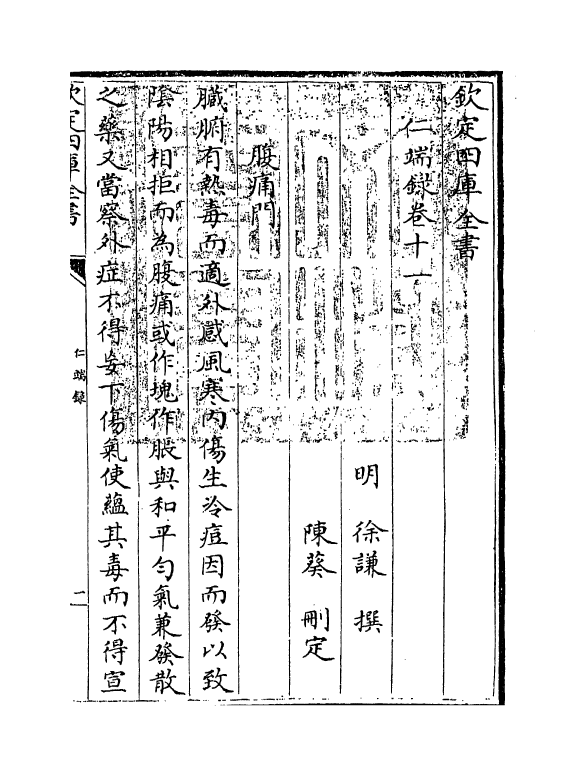 欽定四庫全書
仁端錄卷十一
明 徐謙 撰
陳葵 刪定
腹痛門
臟腑有熱毒而適外感風寒内傷生冷痘因而發以致
陰陽相拒而為腹痛或作塊作脹與和平勻氣兼發散
之藥又當察外症不得妄下傷氣使蘊其毒而不得宣
欽定四庫全書
仁端錄
二